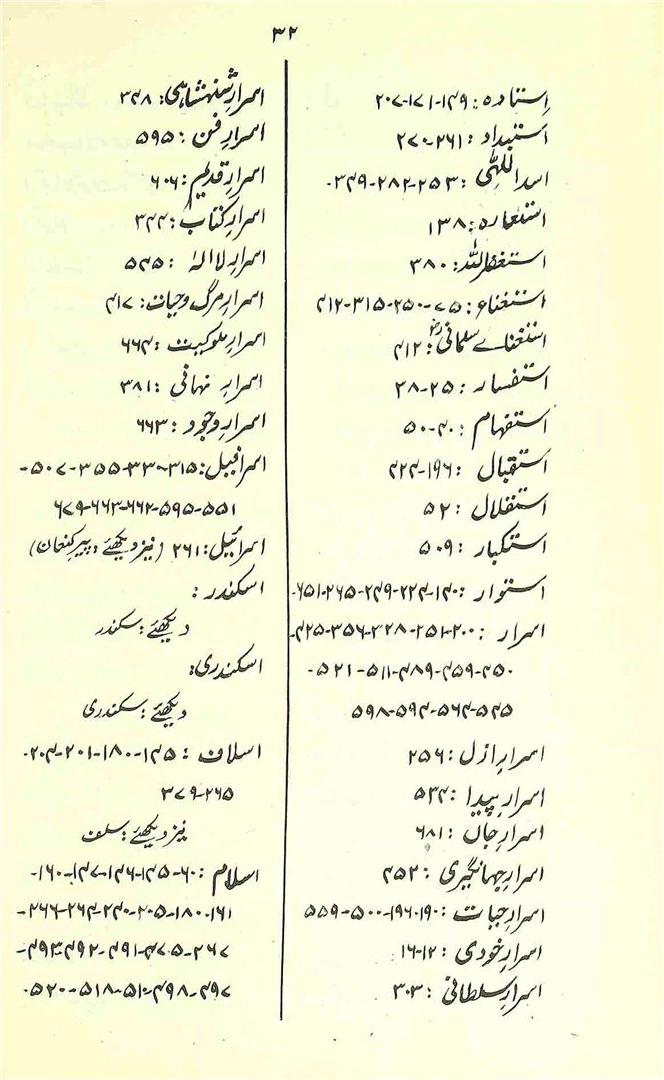 ۳۲
اِستادہ: ۱۴۹-۱۷۱-۲۰۷
استبداد: ۲۶۱-۲۷۰
اسد اللّٰہی: ۲۵۳-۲۸۲-۳۴۹-
استعارہ: ۱۳۸
استغفراللہ: ۳۸۰
استغناء: ۷۵-۲۵۰-۳۱۵-۴۱۲
استغنائے سلمانیؓ: ۴۱۲
استفسار: ۲۵-۲۸
استفہام: ۴۰-۵۰
استقبال: ۱۹۶-۴۲۴
استقلال: ۵۲
استکبار: ۵۰۹
استوار: ۱۴۰-۲۲۴-۲۴۹-۲۶۵-۶۵۱-
اسرار: ۲۰۰-۲۵۱-۳۲۸-۳۵۶-۴۲۵-
۴۵۰-۴۵۹-۴۸۹-۵۱۱-۵۲۱-
۵۴۵-۵۶۴-۵۹۴-۵۹۸
اسرارِ ازل: ۲۵۶
اسرارِ پیدا: ۵۳۴
اسرارِ جاں: ۶۸۱
اسرارِ جہانگیری: ۴۵۲
اسرارِ حیات: ۱۹۰-۱۹۶-۵۰۰-۵۵۹
اسرارِ خودی: ۱۲-۱۶
اسرارِ سلطانی: ۳۰۳
اسرارِ شہنشاہی: ۳۴۸
اسرارِ فن: ۵۹۵
اسرارِ قدیم: ۶۰۶
اسرارِ کتاب: ۳۴۴
اسرارِ لا الہٰ: ۵۴۵
اسرارِ مرگ و حیات: ۴۱۷
اسرارِ ملوکیت: ۶۶۴
اسرارِ نہانی: ۳۸۱
اسرارِ وجود: ۶۶۳
اسرافیل: ۳۱۵-۳۳۰-۳۵۵-۵۰۷-
۵۵۱-۵۹۵-۶۶۲-۶۶۳-۶۷۹
اسرائیل: ۲۶۱ (نیز دیکھئے: پیرِ کنعان)
اسکندر:
دیکھئے: سکندر
اسکندری:
دیکھئے: سکندری
اسلاف: ۱۴۵-۱۸۰-۲۰۱-۲۰۴-
۲۶۵-۳۷۹
نیز دیکھئے: سلف
اسلام: ۶۰-۱۴۵-۱۴۶-۱۴۷-۱۶۰-
۱۶۱-۱۸۰-۲۰۵-۲۴۰-۲۶۴-۲۶۶-
۲۶۷-۴۷۵-۴۹۱-۴۹۲-۴۹۳-
۴۹۷-۴۹۸-۵۱۰-۵۱۸-۵۲۰-